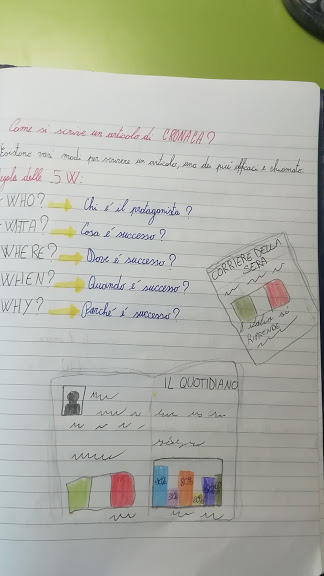 Come si scrive un articolo di CRONACA?
Esistono vari modi per scrivere un articolo, uno dei più efficaci è chiamato
regola delle 5 W:
WHO? Chi è il protagonista?
WHTA? Cosa è successo?
WHERE? Dove è successo?
WHEN? Quando è successo?
WHY? Perché è successo?
CORRIERE DELLA
SERA
l'italia si
RIPRENDE
IL QUOTIDIANO